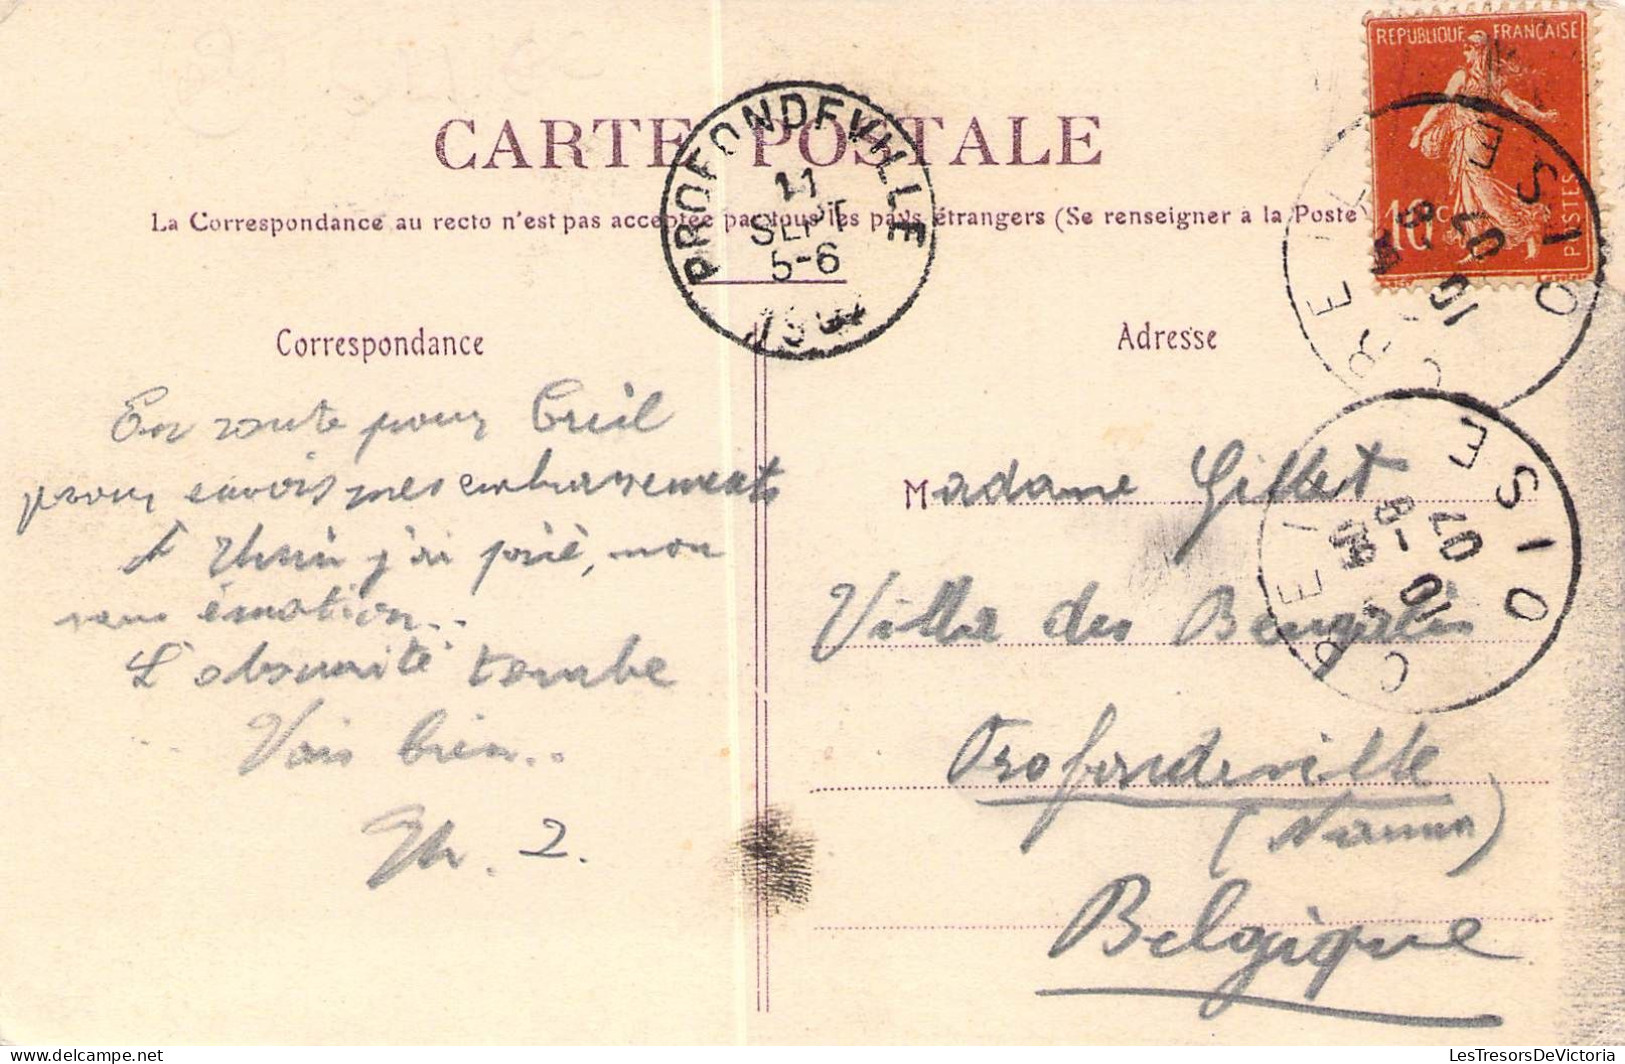 RÉPUBLIQUE FRANÇAISE
10c
POSTES
CARTE POSTALE
PROFONDEVILLE
11
SEPT
5-6
La Correspondance au recto n'est pas acceptée par tous les pays étrangers (Se renseigner à la Poste
CREIL
OISE
10 -9
07
CREIL
OISE
10 -9
07
Correspondance
Adresse
En route pour Creil
pour envois mes embrassements
A j'ai prié, non
sans émotion..
L'obscurité tombe
Vais bien..
Th. 2.
Madame Gillet
Villa des Bengalis
Profondeville
(Namur)
Belgique
LesTresorsDeVictoria